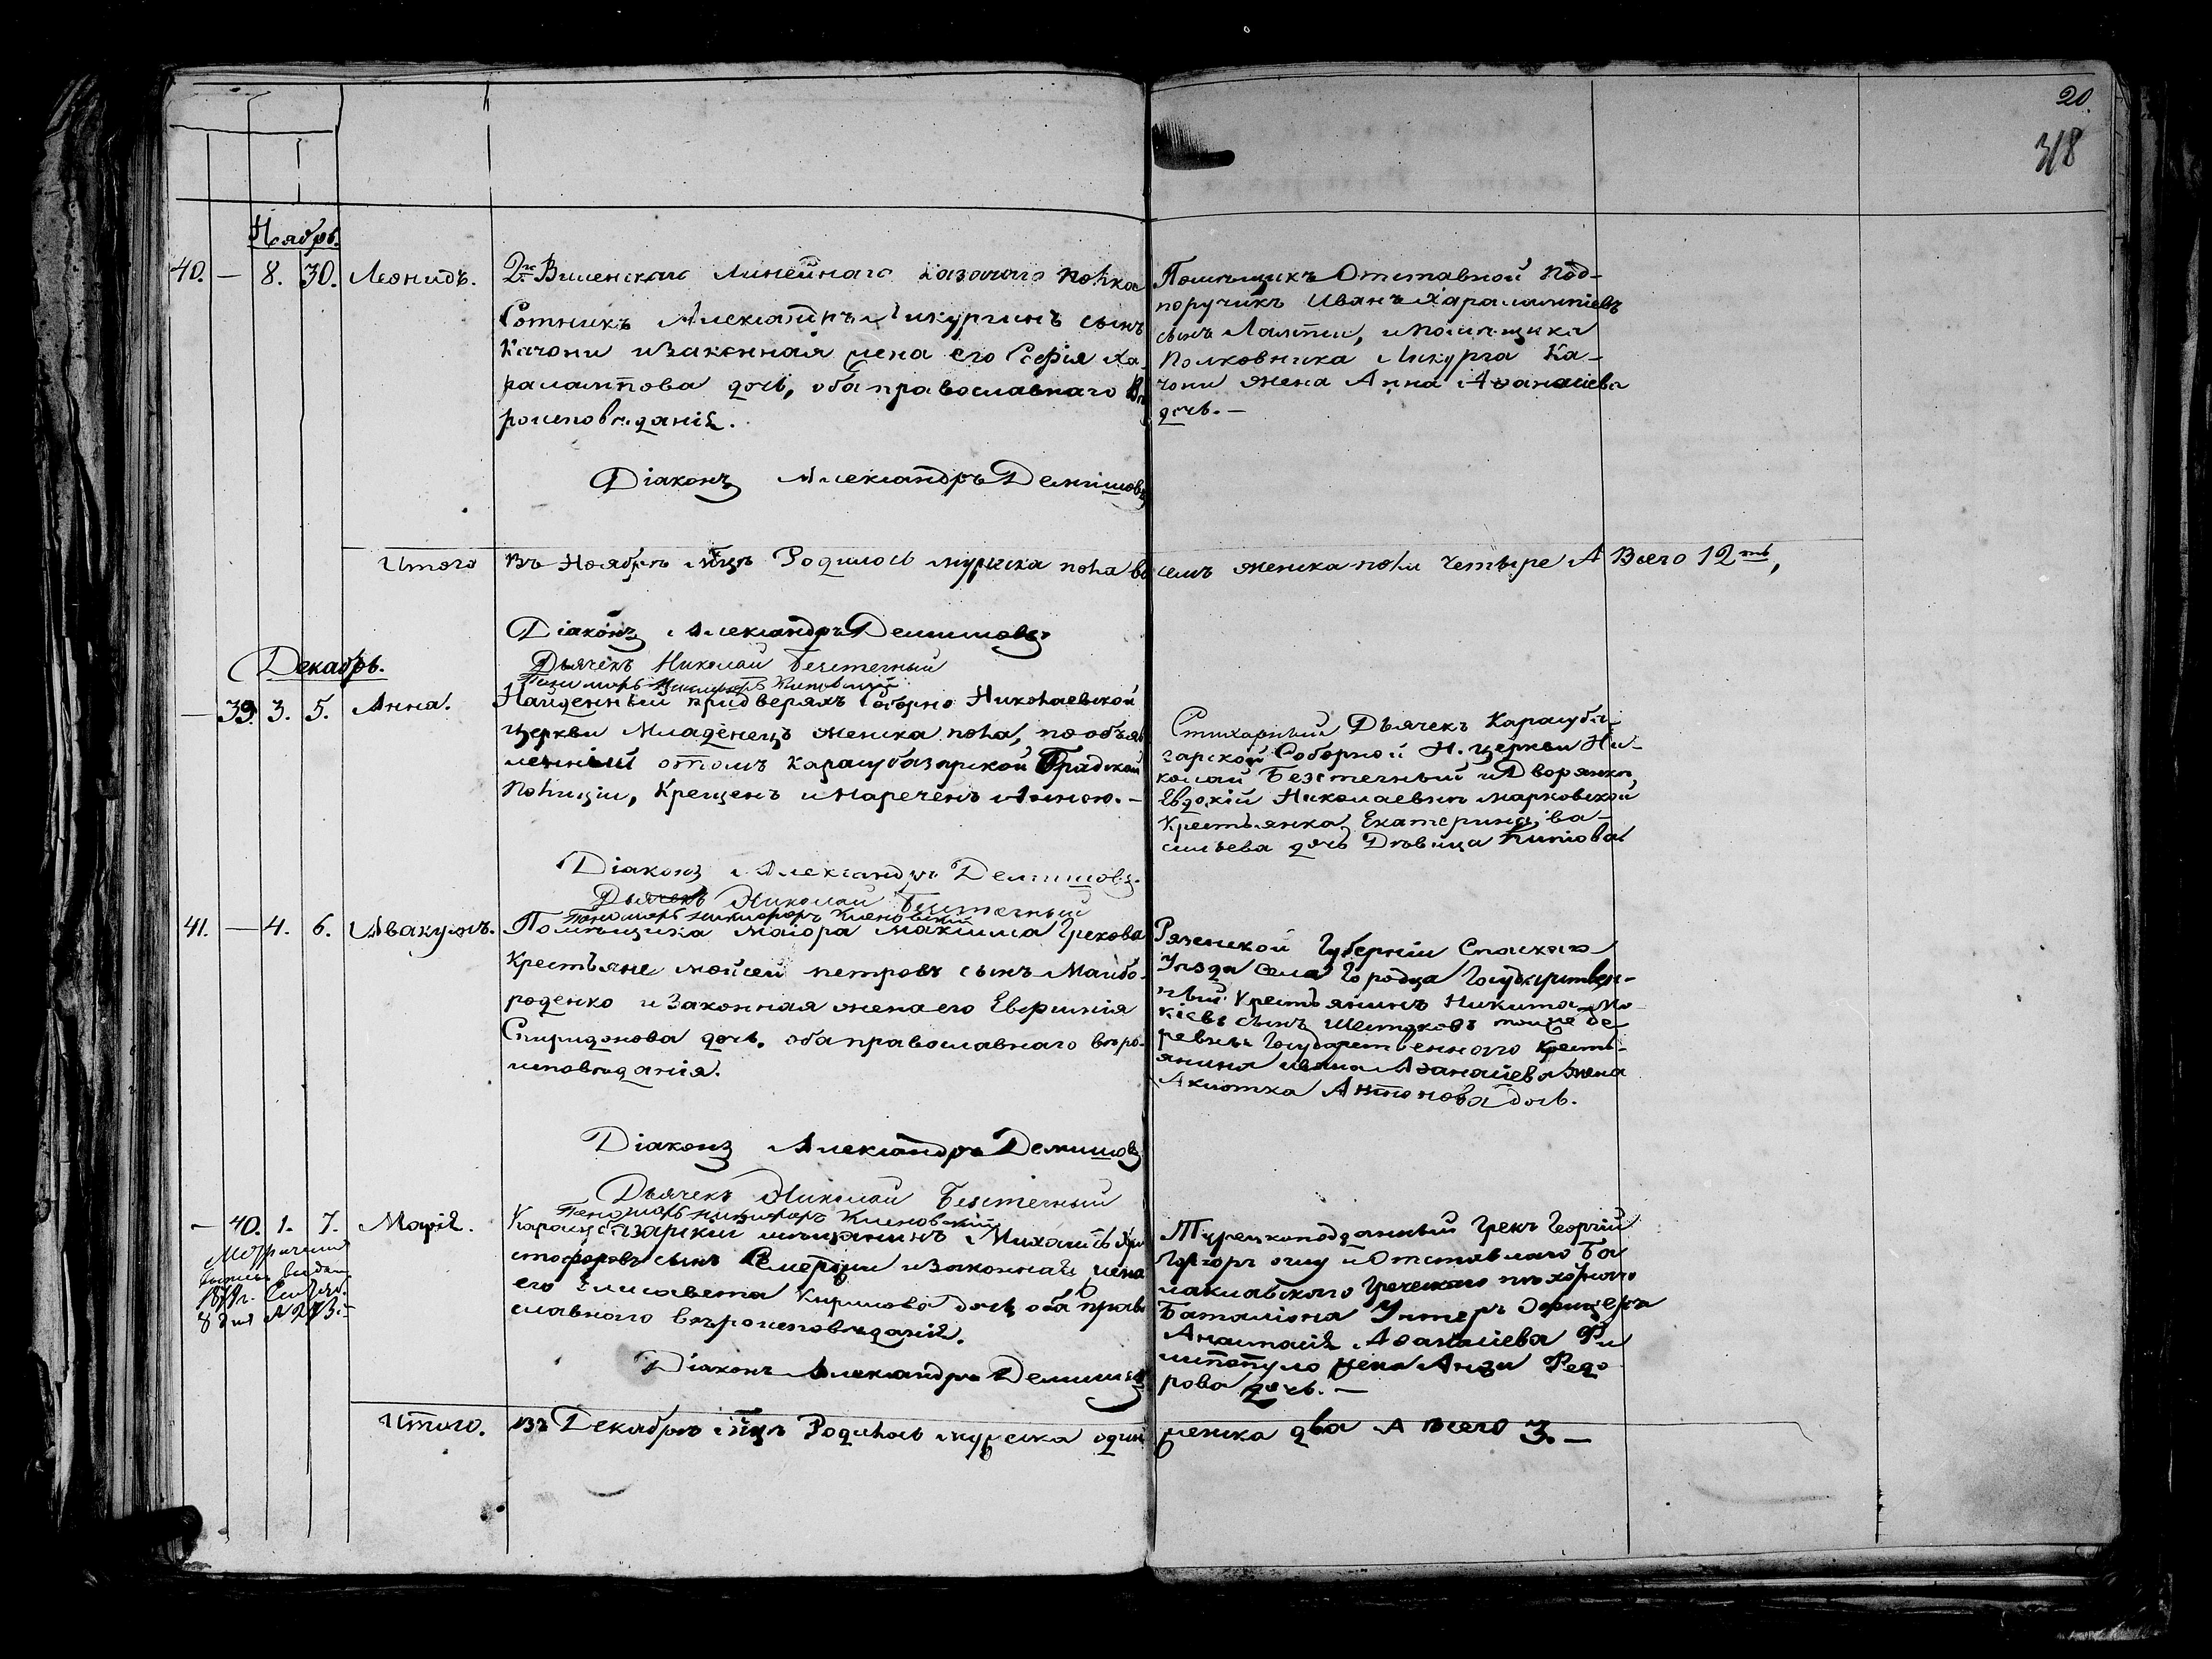 20.
318
Ноябрь.
40. — 8. 30. Леонидъ.
2го Виленскаго Линейнаго казачаго полка
Сотникъ Александръ Ликургинъ сынъ
Качони и законная жена его Софія Ха-
ралампова дочь, оба православнаго Вѣ
роисповѣданія.
Помѣщикъ Отставной Под-
поручикъ Иванъ Харалампіевъ
сынъ Лампси, и помѣщика
Полковника Ликурга Ка-
чони жена Анна Аѳанасіева
дочь. —
Діаконъ Александръ Демишовъ
Итого въ Ноябрѣ мцѣ Родилось мужска пола во семъ женска полу четыре А Всего 12ть,
Діаконъ Александръ Демишовъ
Дьячекъ Николай Безстечный
Декабрь.
— 39. 3. 5. Анна.
Найденный при дверяхъ Соборно Николаевской
церкви Младенецъ женска пола, по объяв
ленный о томъ Карасубазарской Градской
Полиціи, Крещенъ и Нареченъ Анною. —
Стихарный Дьячекъ Карасуба-
зарской Соборной Н. церкви Ни-
колай Безстечный и Дворянки,
Евдокій Николаевны Марковской
Крестьянка Екатерина, Ва-
сильева дочь Дѣвица
Діаконъ Александръ Демишовъ.
Дьячекъ Николай Безстечный
Пономарь Никифоръ Кленовскій
41. — 4. 6. Аввакумъ.
Помѣщика Маіора Максима Грекова
Крестьяне Мойсей Петровъ сынъ Майбо-
роденко и законная жена его Евфимія
Спиридонова дочь. оба православнаго вѣро-
исповѣданія.
Рязенской Губерніи Спаскаго
Уѣзда Села Городца Государствен-
ный Крестьянинъ Никита Мо-
кіевъ сынъ тойже де-
ревни Государственного Кресть-
янина Ивана Аѳанасіева жена
Антонова дочь.
Діаконъ Александръ Демишовъ
Дьячекъ Николай Безстечный
Пономарь Никифоръ Кленовскій
— 40. 1. 7. Марія.
Карасубазарскій мѣщанинъ Михаилъ Хри
стофоровъ сынъ и законная жена
его Елисавета Кирилова дочь оба право
славнаго вѣроисповѣданія.
Турецкоподданный Грекъ Георгій
Горгоръ оглу и Отставнаго Ба
лаклавского Греческаго пѣхотного
Баталіона Унтеръ Офицера
Анастасія Аѳанасіева Фи
жена Анзи Федо
рова дочь. —
Діаконъ Александръ Демишовъ
Итого. въ Декабрѣ мцѣ Родилось мужска одинъ женска два А Всего 3. —